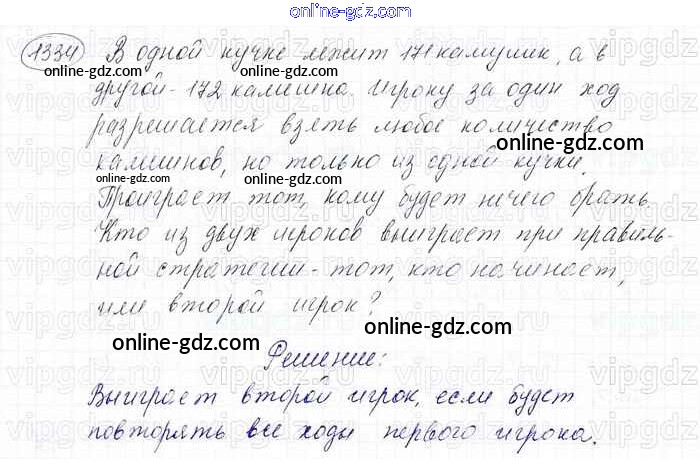 online-gdz.com
1334 В одной кучке лежит 171 камушек, а в
другой - 172 камешка. Игроку за один ход
разрешается взять любое количество
камешков, но только из одной кучки.
Проиграет тот, кому будет нечего брать.
Кто из двух игроков выиграет при правиль-
ной стратегии - тот, кто начинает,
или второй игрок?
Решение:
Выиграет второй игрок, если будет
повторять все ходы первого игрока.
online-gdz.com
online-gdz.com
online-gdz.com
online-gdz.com
online-gdz.com
online-gdz.com
online-gdz.com
online-gdz.com
online-gdz.com